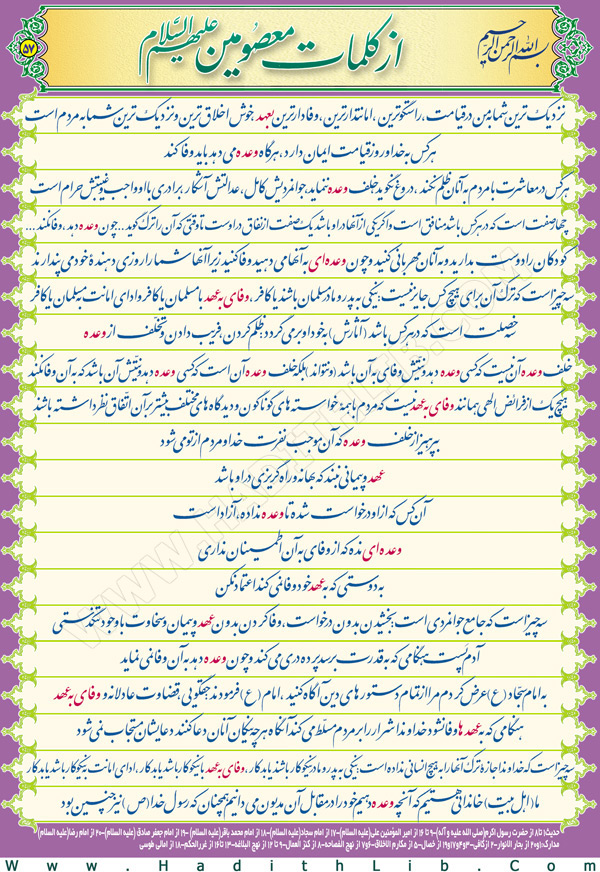 بسم الله الرحمن الرحیم
از کلمات معصومین علیهم السلام
۵۷
نزدیک ترین شما به من در قیامت، راستگوترین، امانتدارترین، وفادارترین بعهد، خوش اخلاق ترین و نزدیک ترین شما به مردم است
هر کس به خدا و روز قیامت ایمان دارد، هر گاه وعده می دهد باید وفا کند
هر کس در معاشرت با مردم به آنان ظلم نکند، دروغ نگوید خلف وعده ننماید جوانمردیش کامل، عدالتش آشکار برادری با او واجب و غیبتش حرام است
چهار صفت است که در هر کس باشد منافق است و اگر یکی از آنها در او باشد یک صفت از نفاق در اوست تا وقتی که آن را ترک گوید... چون وعده دهد، وفا نکند...
کودکان را دوست بدارید و به آنان مهربانی کنید و چون وعده ای به آنها می دهید وفا کنید زیرا آنها شما را روزی دهندهٔ خود می پندارند
سه چیز است که ترک آن برای هیچ کس جایز نیست: نیکی به پدر و مادر مسلمان باشند یا کافر، وفای به عهد با مسلمان یا کافر و ادای امانت به مسلمان یا کافر
خصلت است که در هر کس باشد (آثارش) به خود او بر می گردد: ظلم کردن، فریب دادن و تخلف از وعده
خلف وعده آن نیست که کسی وعده دهد و نیتش وفای به آن باشد (و نتواند) بلکه خلف وعده آن است که کسی وعده دهد و نیتش آن باشد که به آن وفا نکند
هیچ یک از فرائض الهی همانند وفای به عهد نیست که مردم با همهٔ خواسته های گوناگون و دیدگاه های مختلف بیشتر بر آن اتفاق نظر داشته باشند
بپرهیز از خلف وعده که آن موجب نفرت خدا و مردم از تو می شود
عهد و پیمانی نبند که بهانه و راه گریزی در او باشد
آن کس که از او درخواست شده تا وعده نداده، آزاد است
وعده ای نده که از وفای به آن اطمینان نداری
به دوستی که به عهد خود وفا نمی کند اعتماد نکن
سه چیز است که جامع جوانمردی است: بخشیدن بدون درخواست، وفا کردن بدون عهد و پیمان و سخاوت با وجود تنگدستی
آدم پست هنگامی که به قدرت برسد پرده دری می کند و چون وعده دهد به آن وفا نمی نماید
به امام سجاد (ع) عرض کردم مرا از تمام دستورهای دین آگاه کنید، امام (ع) فرمودند: حقگویی، قضاوت عادلانه و وفای به عهد
هنگامی که به عهدها وفا نشود خداوند اشرار را بر مردم مسلط می کند آنگاه هر چه نیکان آنان دعا کنند دعایشان مستجاب نمی شود
سه چیز است که خداوند اجازه ترک آنها را به هیچ انسانی نداده است: نیکی به پدر و مادر نیکوکار باشند یا بدکار، وفای به عهد با نیکوکار باشد یا بدکار، ادای امانت به نیکوکار باشد یا بدکار
ما (اهل بیت) خاندانی هستیم که آنچه وعده دهیم خود را در مقابل آن مدیون می دانیم همچنان که رسول خدا (ص) نیز چنین بود
حدیث: ۱ تا ۸ از حضرت رسول اکرم (صلی الله علیه و آله)- ۹ تا ۱۶ از امیر المؤمنین علی (علیه السلام)- ۱۷ از امام سجاد (علیه السلام)- ۱۸ از امام محمد باقر (علیه السلام)- ۱۹ از امام جعفر صادق (علیه السلام)- ۲۰ از امام رضا (علیه السلام)
www.HadithLib.com